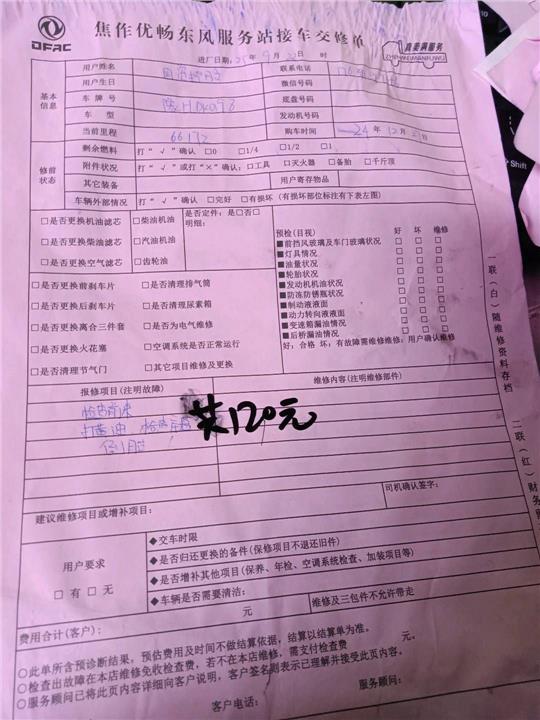 DFAC
焦作优畅东风服务站接车交修单
真爱满服务
ZHENAIMANFUWU
进厂日期：25年9月 日 时
基本信息
用户姓名
联系电话
用户生日
微信号码
车牌号
底盘号码
车型
发动机号码
当前里程 66172
购车时间 24年12月 日
修前状态
剩余燃料 打“√”确认 □0 □1/4 □1/2 □1
附件状况 打“√”或打“×”确认：□工具 □灭火器 □备胎 □千斤顶
其它装备
用户寄存物品
车辆外部情况 打“√”确认 □完好 □有损坏（有损坏部位标注有下表左图）
□是否更换机油滤芯 □柴油机油
□是否更换柴油滤芯 □汽油机油
□是否更换空气滤芯 □齿轮油
是否定件：是□否□
明细：
□是否更换前刹车片 □是否清理排气筒
□是否更换后刹车片 □是否清理尿素箱
□是否更换离合三件套 □是否为电气维修
□是否更换火花塞 □空调系统是否正常运行
□是否清理节气门 □其它项目维修及更换
预检（目视） 好 坏 维修
■前挡风玻璃及车门玻璃状况 □ □ □
■灯具情况 □ □ □
■油量状况 □ □ □
■轮胎状况 □ □ □
■发动机机油状况 □ □ □
■防冻防锈瓶状况 □ □ □
■制动液液面 □ □ □
■动力转向液液面 □ □ □
■变速箱漏油情况 □ □ □
■后桥漏油情况 □ □ □
好：合格 坏：有故障需维修维修：用户确认维修
报修项目（注明故障）
维修内容（注明维修部件）
打黄油
共120元
司机确认签字：
建议维修项目或增补项目：
用户要求
□有 □无
◆交车时限
◆是否归还更换的备件（保修项目不退还旧件）
◆是否增补其他项目（保养、年检、空调系统检查、加装项目等）
◆车辆是否需要清洁：
元
维修及三包件不允许带走
费用合计（客户）：
○此单所含预诊断结果，预估费用及时间不做结算依据，结算以结算单为准。
○检查出故障在本店维修免收检查费，若不在本店维修，需支付检查费 元。
○服务顾问已将此页内容详细向客户说明，客户签名则表示已理解并接受此页内容。
客户电话：
服务顾问：
一联（白）随维修资料存档
二联（红）财务
Shift